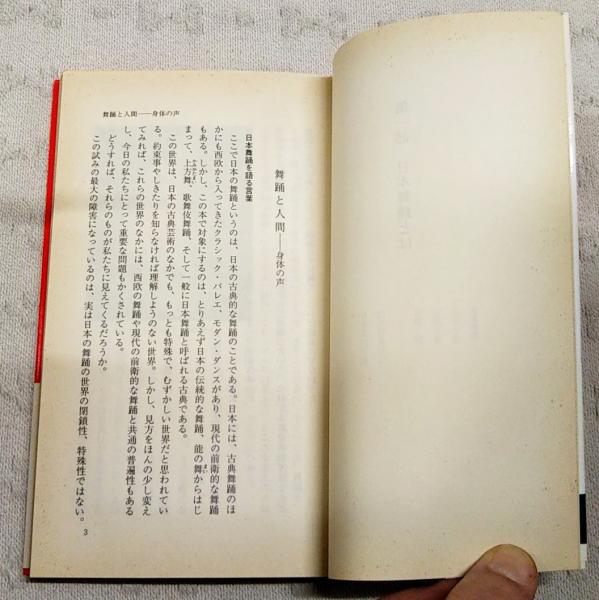 舞踊と人間――身体の声
舞踊と人間――身体の声
日本舞踊を語る言葉
ここで日本の舞踊というのは、日本の古典的な舞踊のことである。日本には、古典舞踊のほ
かにも西欧から入ってきたクラシック・バレエ、モダン・ダンスがあり、現代の前衛的な舞踊
もある。しかし、この本で対象にするのは、とりあえず日本の伝統的な舞踊、能の舞からはじ
まって、上方舞、歌舞伎舞踊、そして一般に日本舞踊と呼ばれる古典である。
この世界は、日本の古典芸術のなかでも、もっとも特殊で、むずかしい世界だと思われてい
る。約束事やしきたりを知らなければ理解しようのない世界。しかし、見方をほんの少し変え
てみれば、これらの世界のなかには、西欧の舞踊や現代の前衛的な舞踊と共通の普遍性もある
し、今日の私たちにとって重要な問題もかくされている。
どうすれば、それらのものが私たちに見えてくるだろうか。
この試みの最大の障害になっているのは、実は日本の舞踊の世界の閉鎖性、特殊性ではない。
3